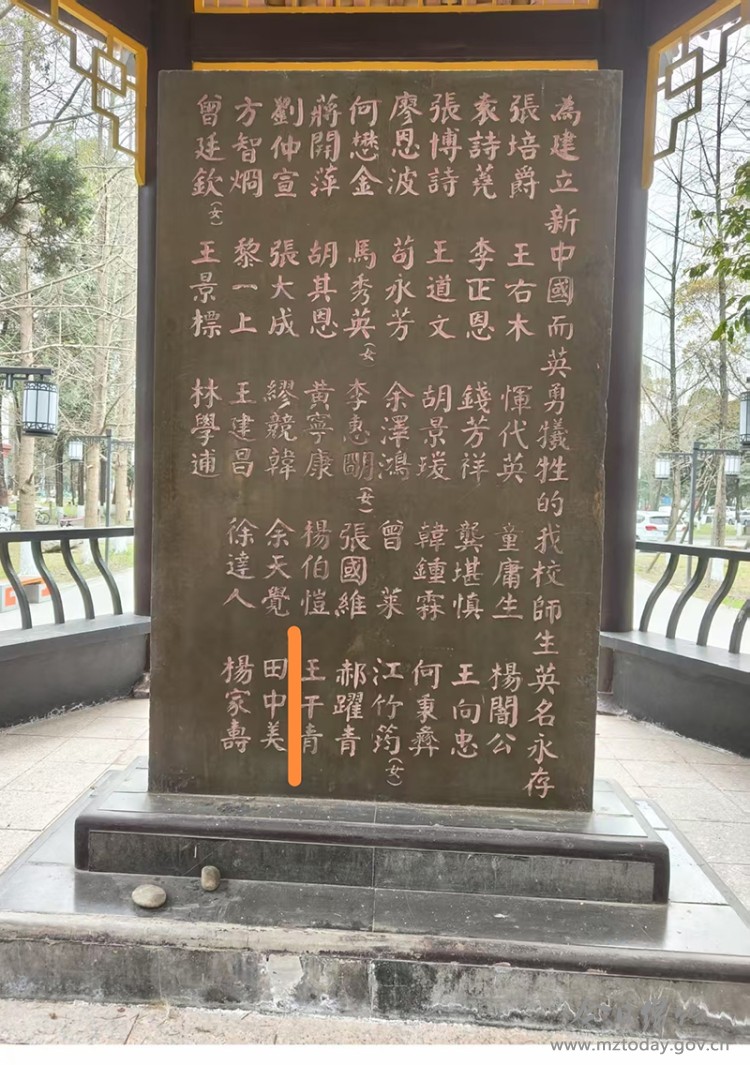 為建立新中國而英勇犧牲的我校師生英名永存
張培爵 王右木 惲代英 童庸生 楊闇公
袁詩蕘 李正恩 錢芳祥 龔堪慎 王向忠
張博詩 王道文 胡景瑗 韓鍾霖 何秉彝
廖恩波 苟永芳 余澤鴻 曾萊 江竹筠(女)
何懋金 馬秀英(女) 李惠明(女) 張國維 郝躍青
蔣開萍 胡其恩 黃寧康 楊伯愷 王干青
劉仲宣 張大成 繆競韓 余天覺 田中美
方智炯 黎一上 王建昌 徐達人 楊家壽
曾廷欽(女) 王景標 林學逋
www.mztoday.gov.cn